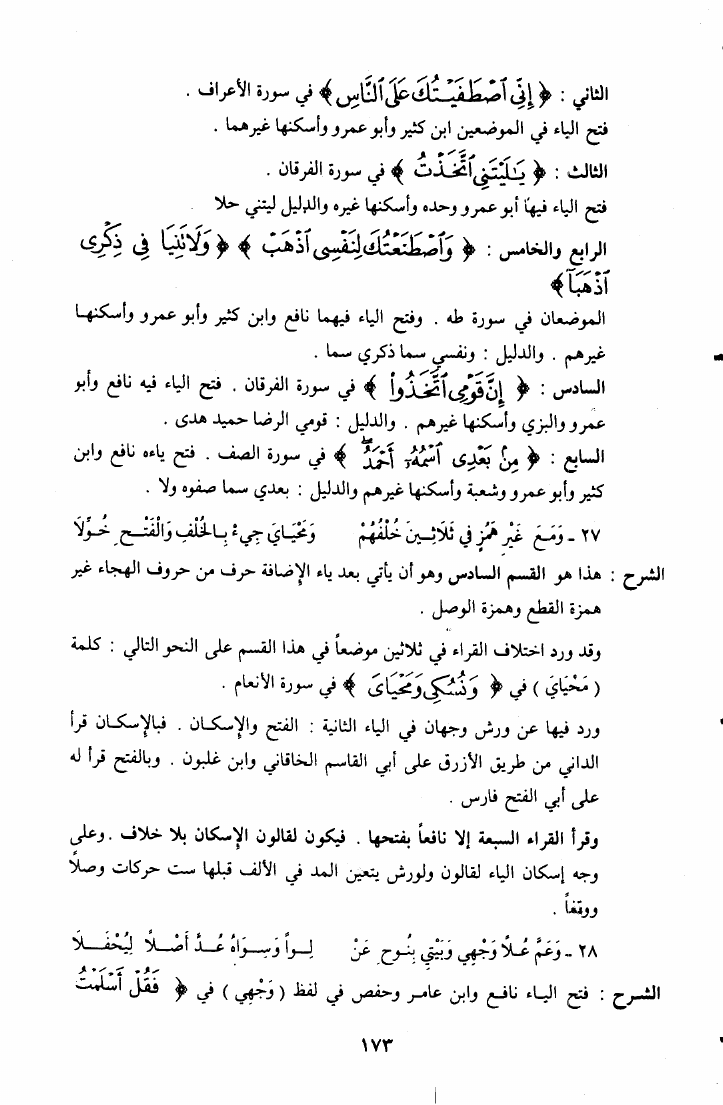 الثاني : ﴿ إِنِّي ٱصۡطَفَيۡتُكَ عَلَى ٱلنَّاسِ ﴾ في سورة الأعراف .
فتح الياء في الموضعين ابن كثير وأبو عمرو وأسكنها غيرهما .
الثالث : ﴿ يَٰلَيۡتَنِي ٱتَّخَذۡتُ ﴾ في سورة الفرقان .
فتح الياء فيها أبو عمرو وحده وأسكنها غيره والدليل ليتني حلا
الرابع والخامس : ﴿ وَٱصۡطَنَعۡتُكَ لِنَفۡسِي ٱذۡهَبۡ ﴾ ﴿ وَلَا تَنِيَا فِي ذِكۡرِي
ٱذۡهَبَآ ﴾
الموضعان في سورة طه . وفتح الياء فيهما نافع وابن كثير وأبو عمرو وأسكنهـا
غيرهم . والدليل : ونفسي سما ذكري سما .
السادس : ﴿ إِنَّ قَوۡمِي ٱتَّخَذُواْ ﴾ في سورة الفرقان . فتح الياء فيه نافع وأبو
عمرو والبزي وأسكنها غيرهم . والدليل : قومي الرضا حميد هدى .
السابع : ﴿ مِنۢ بَعۡدِي ٱسۡمُهُۥٓ أَحۡمَدُۖ ﴾ في سورة الصف . فتح ياءه نافع وابن
كثير وأبو عمرو وشعبة وأسكنها غيرهم والدليل : بعدي سما صفوه ولا .
٢٧ ـ وَمَـعَ غَيْرِ هَمْزٍ فِي ثَلَاثِـينَ خُلْفُهُمْ وَمَحْيَـايَ جِيءْ بِـالْخُلْفِ وَالْفَتْـحِ خُـوِّلَا
الشرح : هذا هو القسم السادس وهو أن يأتي بعد ياء الإضافة حرف من حروف الهجاء غير
همزة القطع وهمزة الوصل .
وقد ورد اختلاف القراء في ثلاثين موضعاً في هذا القسم على النحو التالي : كلمة
( مَحْيَايَ ) في ﴿ وَنُسُكِي وَمَحۡيَايَ ﴾ في سورة الأنعام .
ورد فيها عن ورش وجهان في الياء الثانية : الفتح والإسكـان . فبالإسكـان قرأ
الداني من طريق الأزرق على أبي القاسم الخاقاني وابن غلبون . وبالفتح قرأ له
على أبي الفتح فارس .
وقرأ القراء السبعة إلا نافعاً بفتحها . فيكون لقالون الإسكان بلا خلاف . وعلى
وجه إسكان الياء لقالون ولورش يتعين المد في الألف قبلها ست حركات وصلاً
ووقفاً .
٢٨ ـ وَعَمَّ عُـلًا وَجْهِي وَبَيْتِي بِنُـوحٍ عَنْ لِـواً وَسِـوَاهُ عُـدَّ أَصْـلًا لِيُحْفَـلَا
الشـرح : فتح اليـاء نافـع وابن عامـر وحفص في لفظ ( وَجْهِي ) في ﴿ فَقُلۡ أَسۡلَمۡتُ
١٧٣